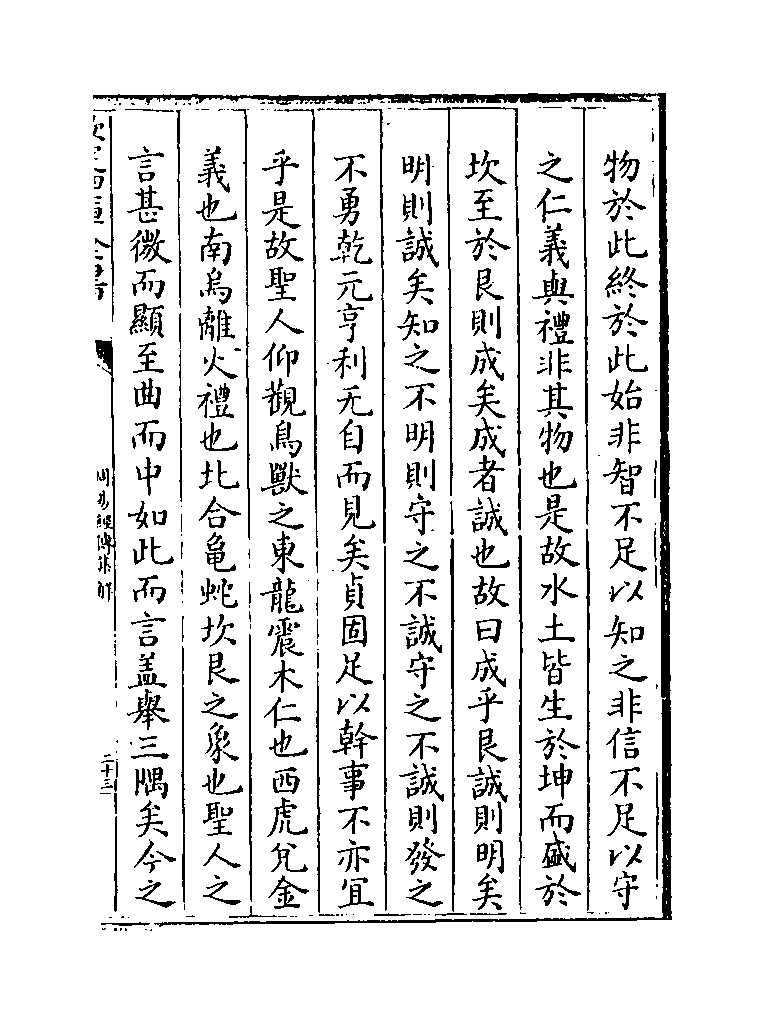 物於此終於此始非智不足以知之非信不足以守
之仁義與禮非其物也是故水土皆生於坤而盛於
坎至於艮則成矣成者誠也故曰成乎艮誠則明矣
明則誠矣知之不明則守之不誠守之不誠則發之
不勇乾元亨利无自而見矣貞固足以幹事不亦宜
乎是故聖人仰觀鳥獸之東龍震木仁也西虎兌金
義也南鳥離火禮也北合龜蛇坎艮之象也聖人之
言甚微而顯至曲而中如此而言盖舉三隅矣今之
周易經傳集解
二十三